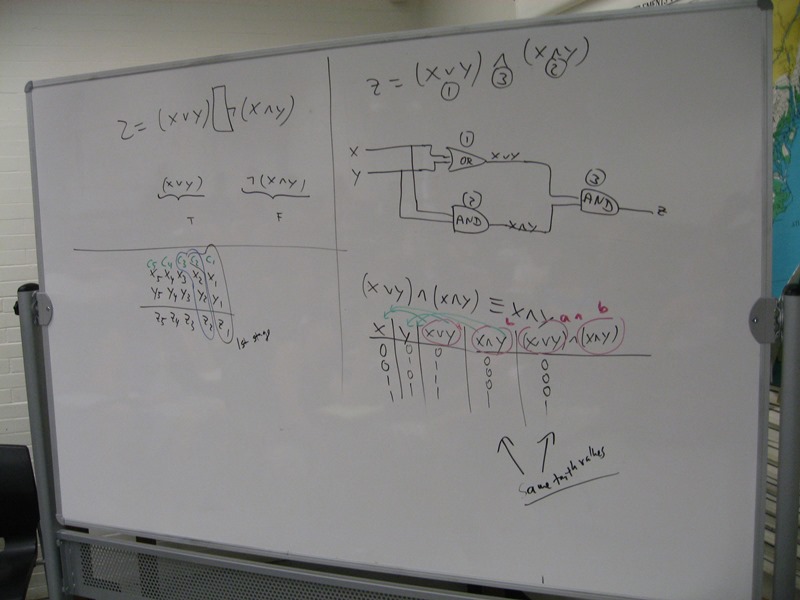 Z = (X∨Y) ¬(X∧Y)
(X∨Y) ¬(X∧Y)
T F
C5 C4 C3 C2 C1
X5 X4 X3 X2 X1
Y5 Y4 Y3 Y2 Y1
Z5 Z4 Z3 Z2 Z1
1st
Z = (X∨Y) ∧ (X∧Y)
① ③ ②
X
Y
① OR X∨Y
② AND X∧Y
③ AND Z
(X∨Y)∧(X∧Y) ≡ X∧Y
a ∧ b
X Y (X∨Y) X∧Y (X∨Y)∧(X∧Y)
0 0 0 0 0
0 1 1 0 0
1 0 1 0 0
1 1 1 1 1
Same truth values